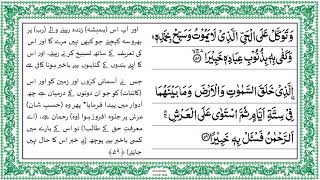 وَتَوَكَّلْ عَلَى الْحَيِّ الَّذِيْ لَا يَمُوْتُ وَسَبِّحْ بِحَمْدِهٖ ؕ
وَكَفٰى بِهٖ بِذُنُوْبِ عِبَادِهٖ خَبِيْرًا ۟ۙ ۵۸
اِ۟لَّذِيْ خَلَقَ السَّمٰوٰتِ وَالْاَرْضَ وَمَا بَيْنَهُمَا
فِيْ سِتَّةِ اَيَّامٍ ثُمَّ اسْتَوٰى عَلَى الْعَرْشِ ۛۚ
اَلرَّحْمٰنُ فَسْـَٔلْ بِهٖ خَبِيْرًا ۟ ۵۹
اور آپ اس (ہمیشہ) زندہ رہنے والے (رب) پر
بھروسہ کیجئے جو کبھی نہیں مرے گا اور اس
کی تعریف کے ساتھ تسبیح کرتے رہئے، اور اس
کا اپنے بندوں کے گناہوں سے باخبر ہونا کافی ہے
جس نے آسمانی کروں اور زمین کو اور اس
(کائنات) کو جو ان دونوں کے درمیان ہے چھ
ادوار میں پیدا فرمایا پھر وہ (حسبِ شان)
عرش پر جلوہ افروز ہوا (وہ) رحمان ہے، (اے
معرفتِ حق کے طالب!) تو اس کے بارے میں
کسی باخبر سے پوچھ (بے خبر اس کا حال نہیں
جانتے) (۵۹)